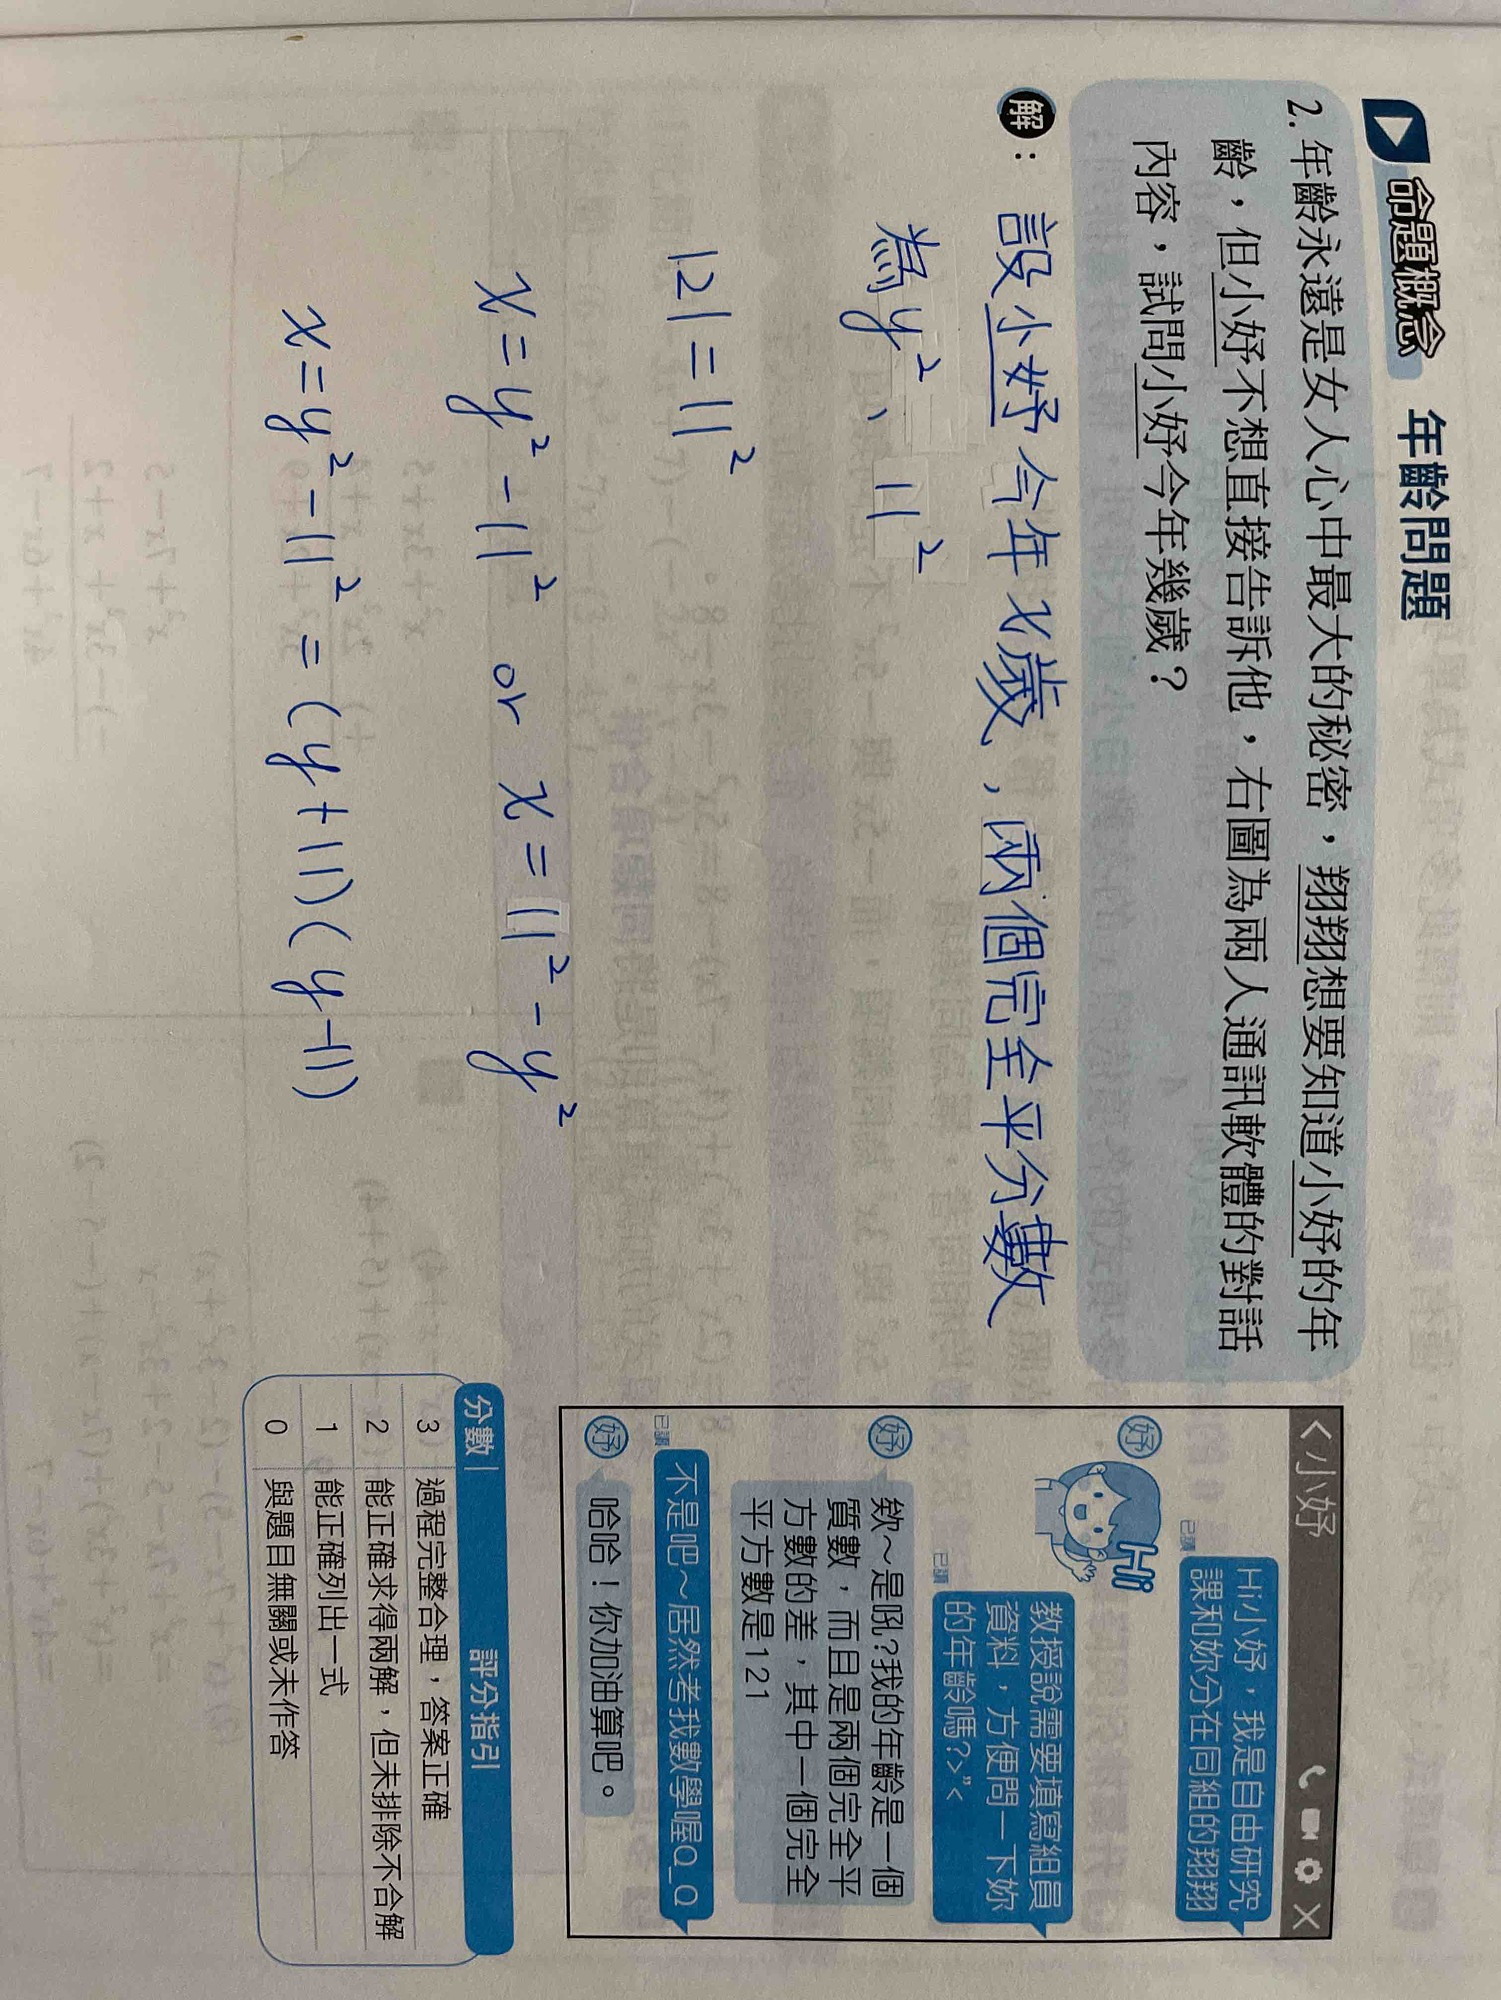 命題概念 年齡問題
2. 年齡永遠是女人心中最大的秘密，翔翔想要知道小妤的年
齡，但小妤不想直接告訴他，右圖為兩人通訊軟體的對話
內容，試問小妤今年幾歲？
解：設小妤今年x歲，兩個完全平分數
為y²、11²
121=11²
x=y²-11² or x=11²-y²
x=y²-11²=(y+11)(y-11)
<小妤
Hi小妤，我是自由研究
課和妳分在同組的翔翔
已讀
妤
Hi
教授說需要填寫組員
資料，方便問一下妳
的年齡嗎?>"<
已讀
妤
欸～是吼?我的年齡是一個
質數，而且是兩個完全平
方數的差，其中一個完全
平方數是121
不是吧～居然考我數學喔Q_Q
已讀
妤
哈哈！你加油算吧。
分數 評分指引
3 過程完整合理，答案正確
2 能正確求得兩解，但未排除不合解
1 能正確列出一式
0 與題目無關或未作答